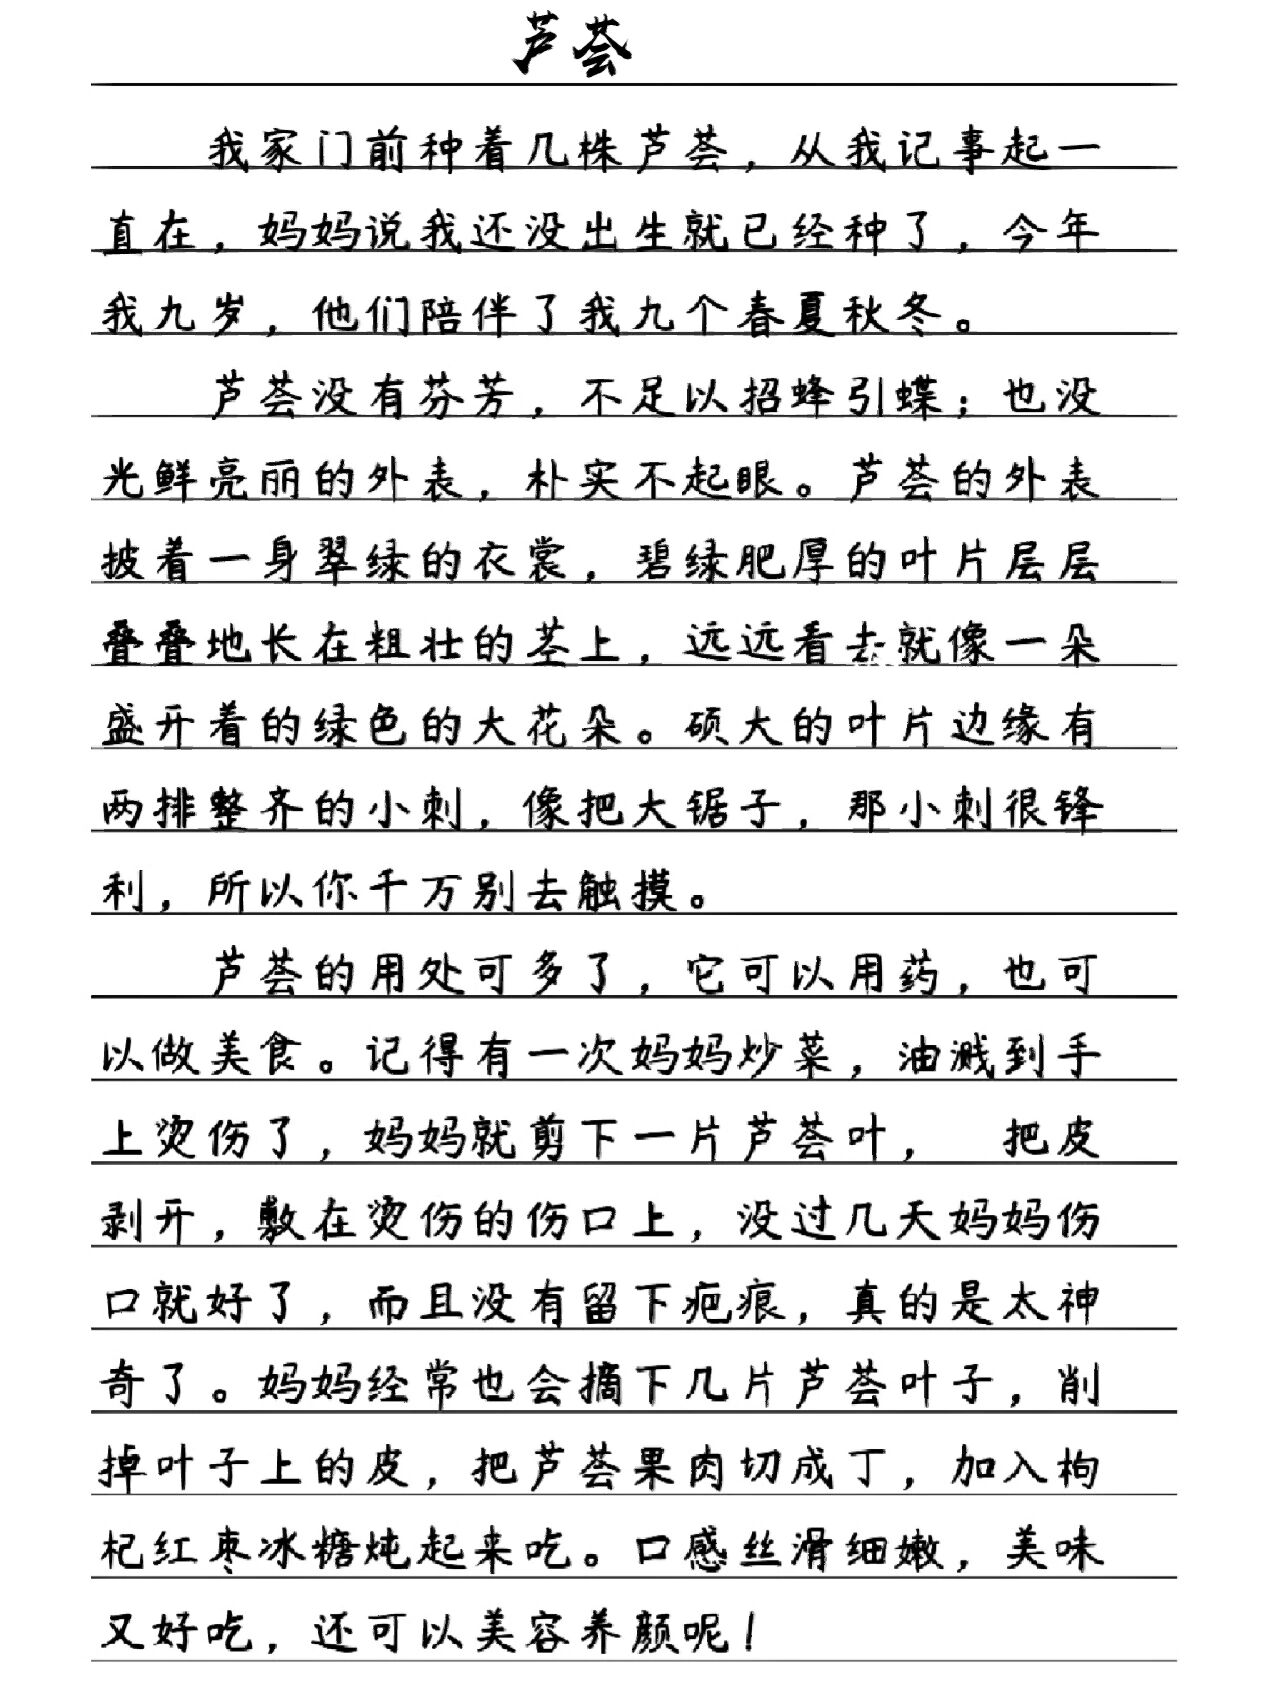 芦荟
我家门前种着几株芦荟，从我记事起一
直在，妈妈说我还没出生就已经种了，今年
我九岁，他们陪伴了我九个春夏秋冬。
芦荟没有芬芳，不足以招蜂引蝶；也没
光鲜亮丽的外表，朴实不起眼。芦荟的外表
披着一身翠绿的衣裳，碧绿肥厚的叶片层层
叠叠地长在粗壮的茎上，远远看去就像一朵
盛开着的绿色的大花朵。硕大的叶片边缘有
两排整齐的小刺，像把大锯子，那小刺很锋
利，所以你千万别去触摸。
芦荟的用处可多了，它可以用药，也可
以做美食。记得有一次妈妈炒菜，油溅到手
上烫伤了，妈妈就剪下一片芦荟叶，　把皮
剥开，敷在烫伤的伤口上，没过几天妈妈伤
口就好了，而且没有留下疤痕，真的是太神
奇了。妈妈经常也会摘下几片芦荟叶子，削
掉叶子上的皮，把芦荟果肉切成丁，加入枸
杞红枣冰糖炖起来吃。口感丝滑细嫩，美味
又好吃，还可以美容养颜呢！